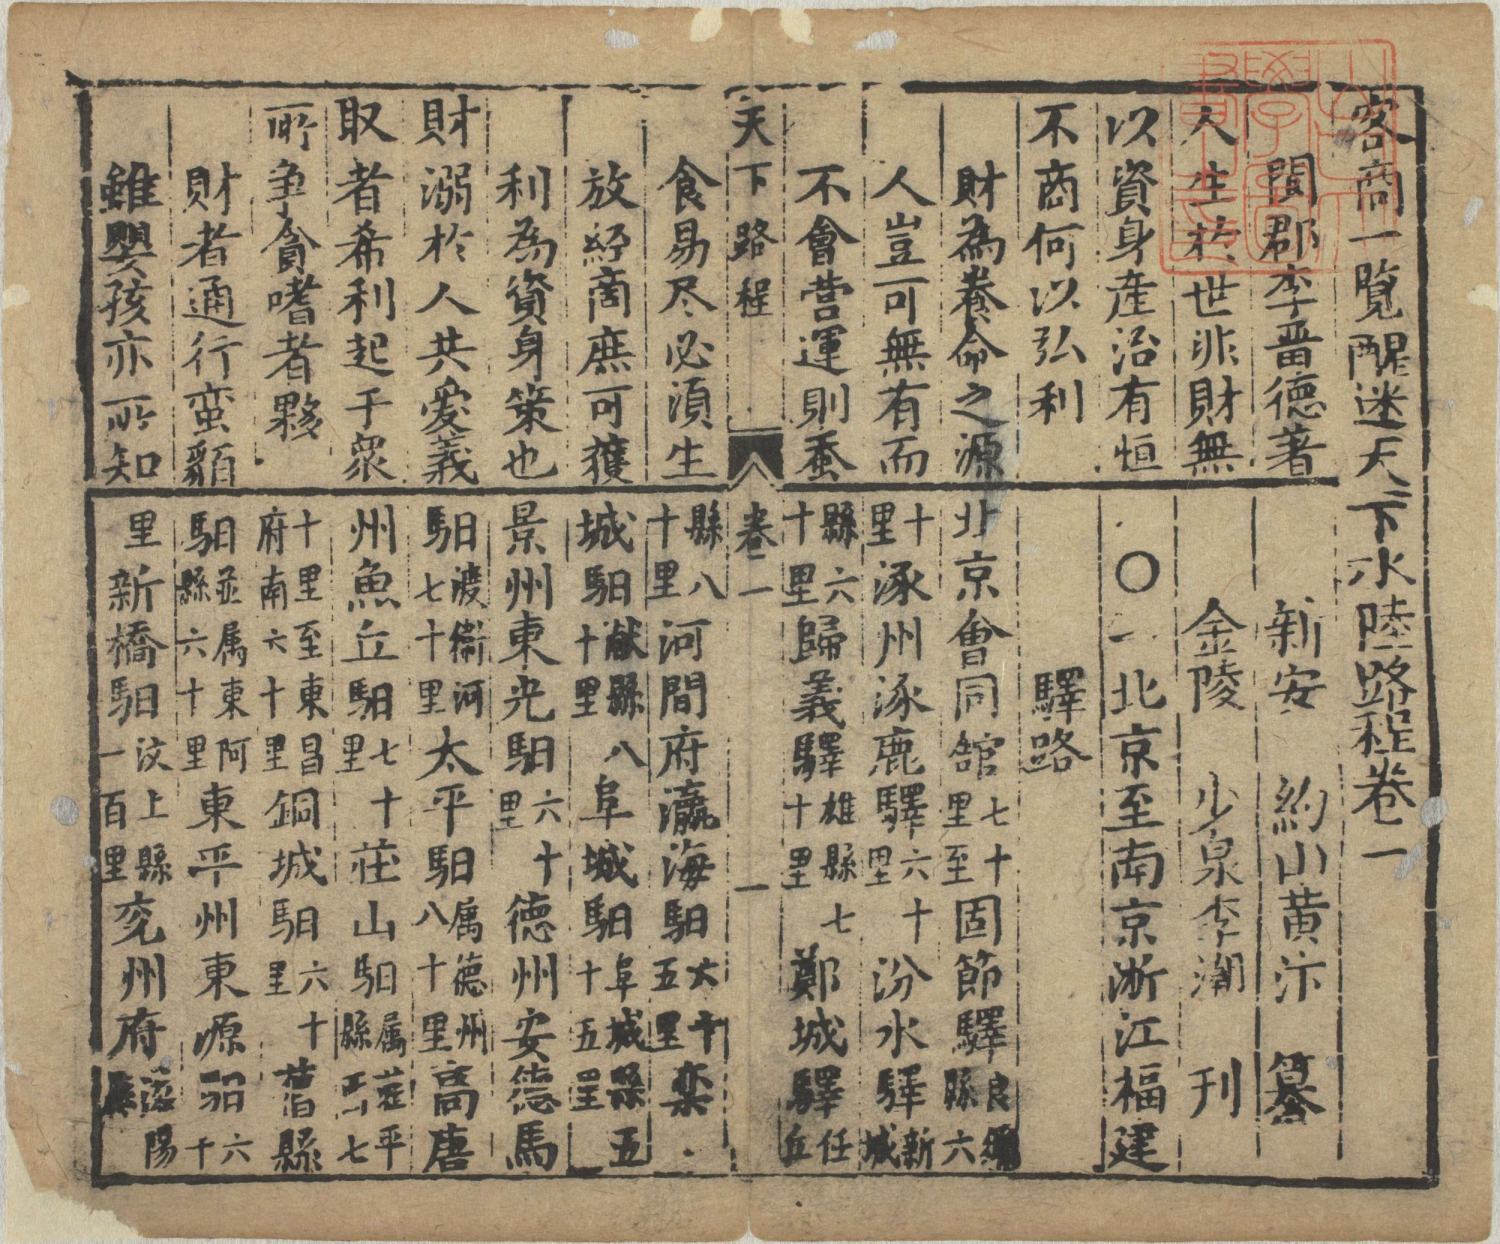 客商一覽醒迷天下水陸路程卷一
閩郡李晋德著
人生於世非財無
以資身産治有恒
不啇何以弘利
財為養命之源
人豈可無有而
不會營運則蚕
食易尽必湏生
放經啇庶可獲
利為資身策也
財溺於人共爱義
取者希利起于衆
所争貪嗜者夥
財者通行蛮貊
雖嬰孩亦所知
新安 約山黄汴 纂
金陵 少泉李潮 刊
〇一北京至南京淅江福建
驛路
北京會同舘七十里至固節驛良鄉縣六
十里涿州涿鹿驛六十里汾水驛新城
縣六十里歸義驛雄縣七十里鄭城驛任丘
天下路程 卷一 一
縣八十里河間府瀛海馹六十五里栾
城馹献縣八十里阜城馹阜城縣五十五里
景州東光馹六十里德州安德馬
馹渡衛河七十里太平馹属德州八十里高唐
州魚丘馹七十里茌山馹属茌平縣七
十里至東昌府南六十里銅城馹六十里舊縣
馹並属東阿縣六十里東平州東源馹六十
里新橋馹汶上縣一百里兖州府滋陽縣